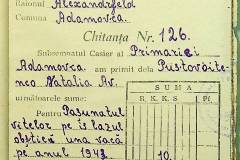 Raionul Alexandrfeld
Comuna Adamovca.
Chitanța Nr. 126.
Subsemnatul Casier al Primariei
Adamovca am primit dela Pustovoite-
nco Natalia Av.
următoarele sume:
SUMA
R. K. K. S P.
Pentru Pasunatul
vitelor pe islazul
obstiei una vacă
pe anul 1942
10